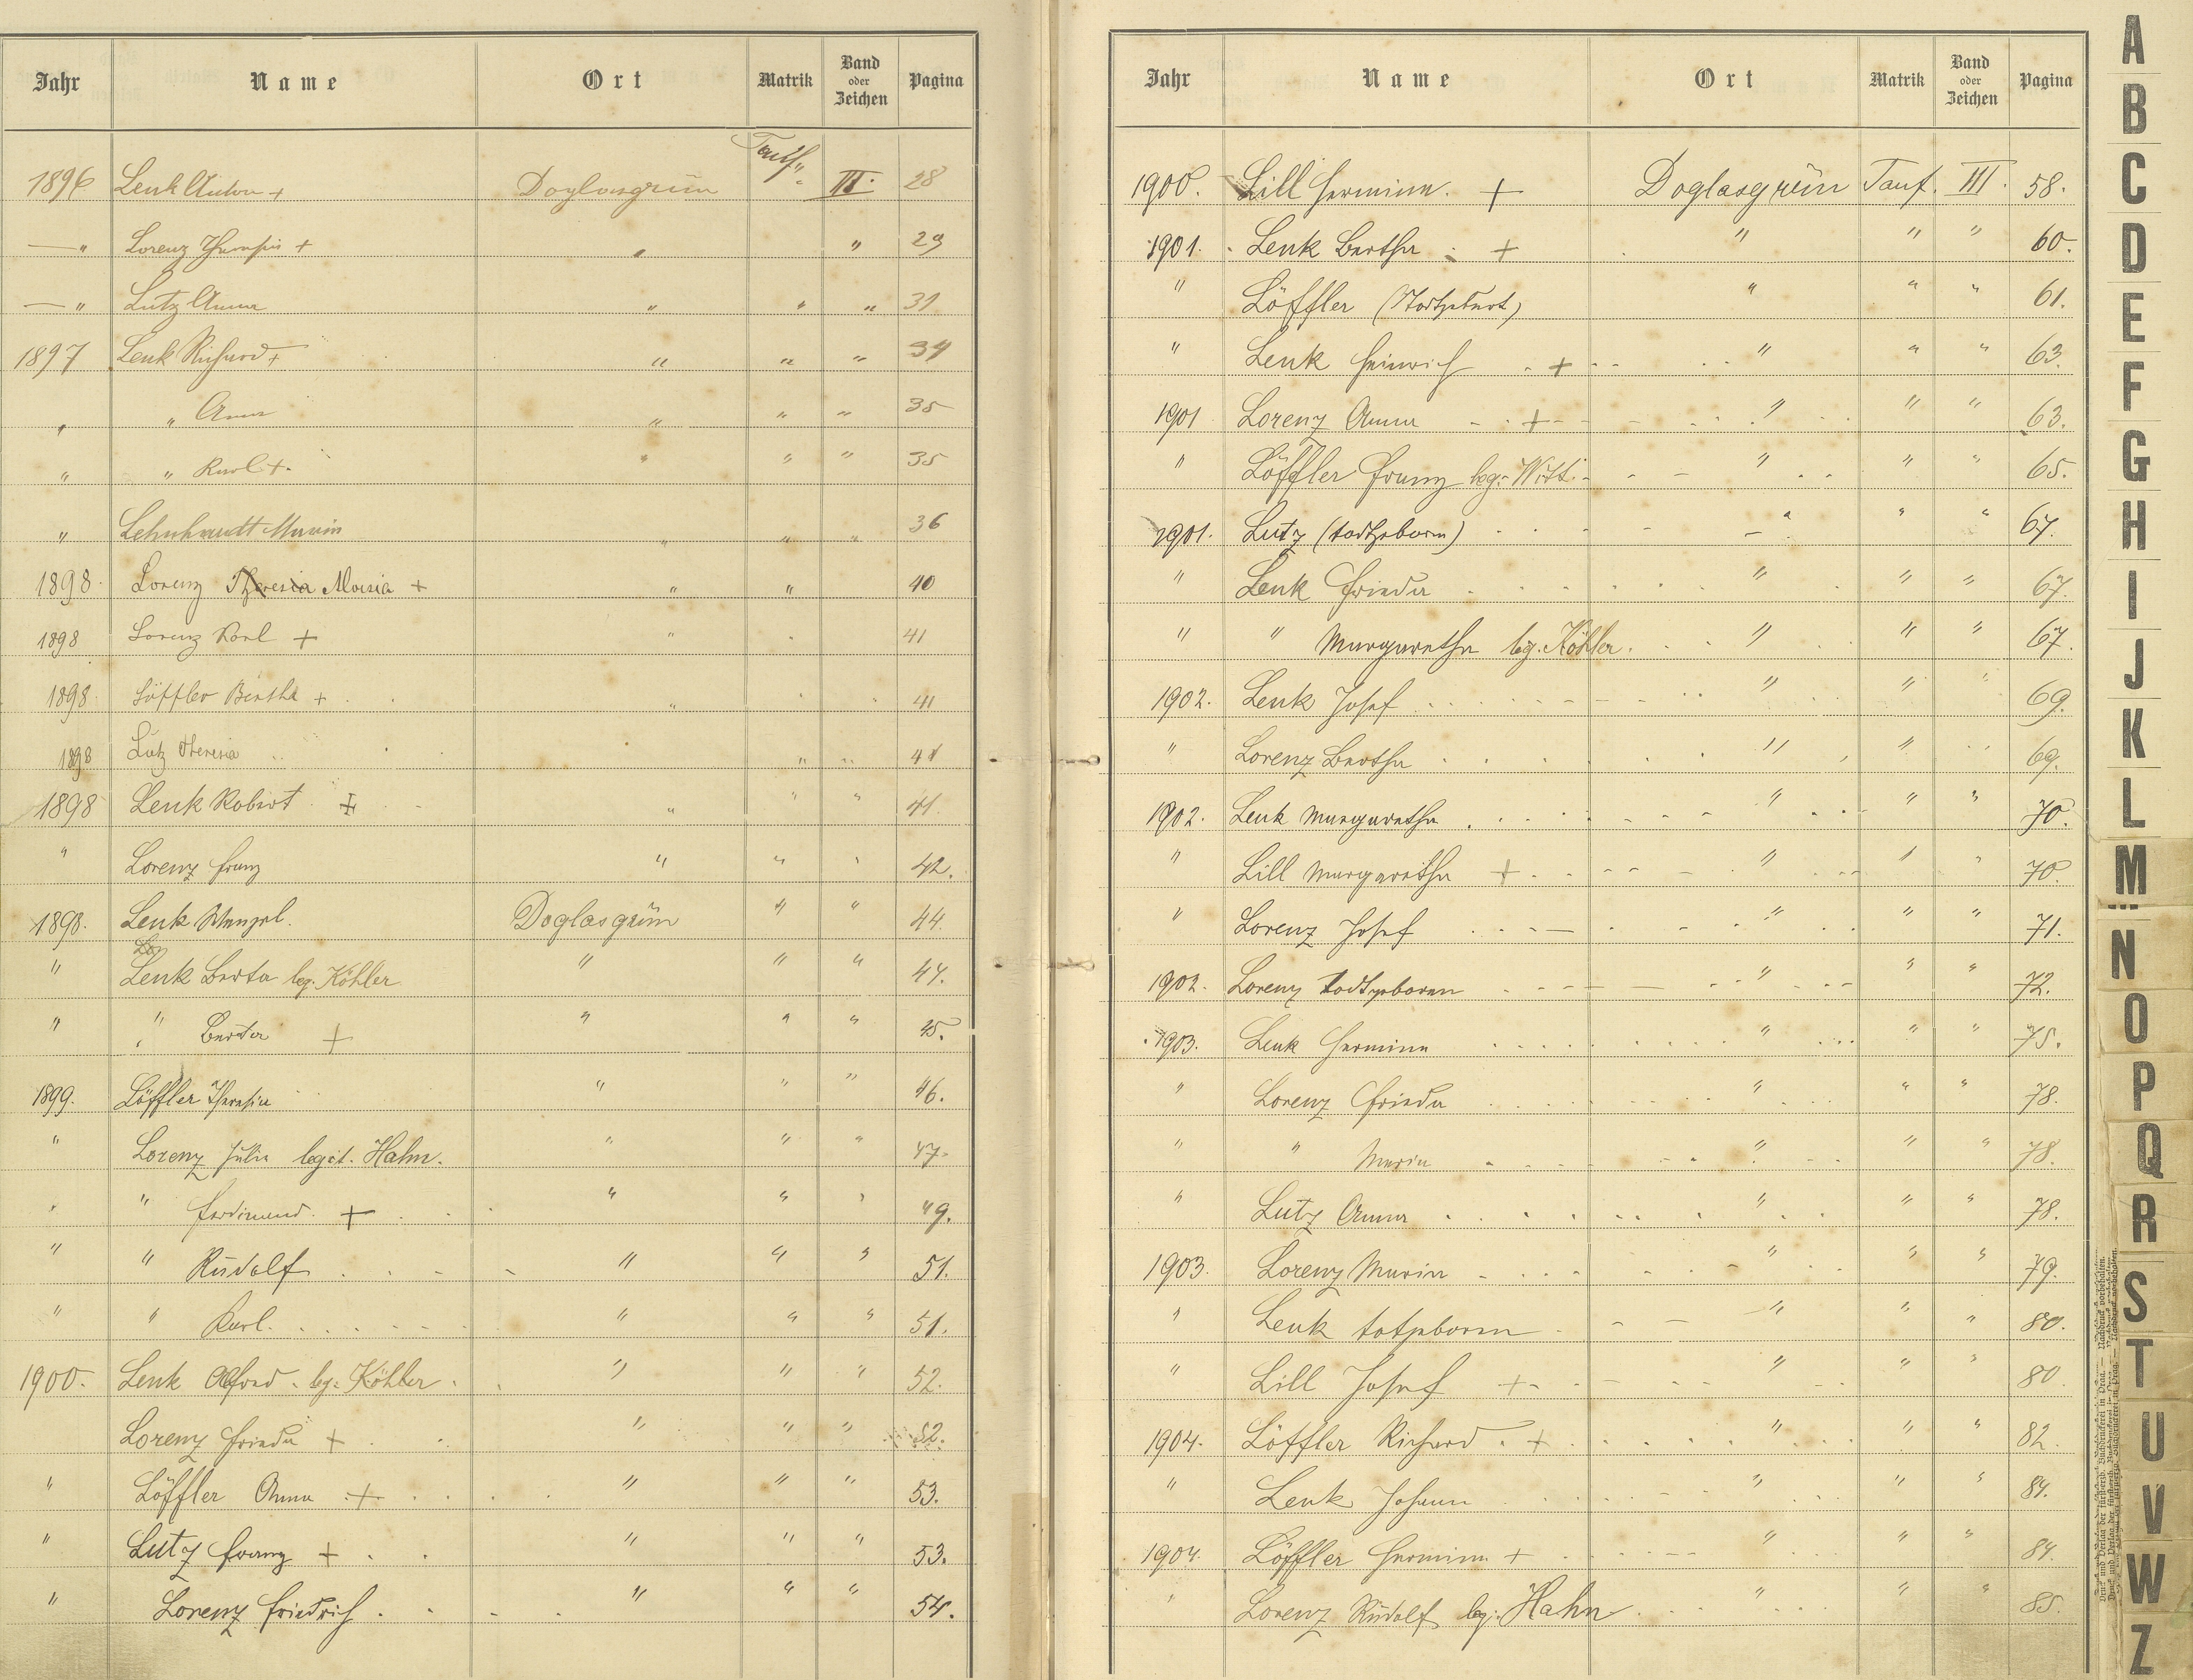 Jahr Name Ort Matrik Band oder Zeichen Pagina
1896 Lenk Anton + Doglasgrün Tauf. III. 28
— " Lorenz Theresia + " " 29
— " Lutz Anna " " " 31
1897 Lenk Richard + " " " 34
" " Anna " " " 35
" " Karl +. " " " 35
" Lehnhardt Maria " " " 36
1898. Lorenz Theresia Aloisia + " " 40
1898 Lorenz Karl + " " 41
1898 Löffler Bertha + " " " 41
1898 Lutz Theresia " " 41
1898 Lenk Robert + " " " 41.
" Lorenz Franz " " " 42.
1898. Lenk Wenzel. Doglasgrün " " 44.
" Lenk Berta leg. Köhler " " " 44.
" " Berta + " " " 45.
1899. Löffler Theresia " " " 46.
" Lorenz Julia legit. Hahn. " " " 47.
" " Ferdinand. + " " " 49.
" " Rudolf " " " 51.
" " Karl. " " " 51.
1900. Lenk Alfred leg. Köhler " " " 52.
Lorenz Frieda + " " " 52.
" Löffler Anna + " " " 53.
" Lutz Franz + " " " 53.
" Lorenz Friedrich " " " 54.
Jahr Name Ort Matrik Band oder Zeichen Pagina
1900. Lill Hermine. + Doglasgrün Tauf. III. 58.
1901. Lenk Bertha + " " " 60.
" Löffler (Todtgeburt) " " " 61.
" Lenk Heinrich + " " " 63.
1901 Lorenz Anna + " " " 63.
" Löffler Franz leg. " " " 65.
1901. Lutz (todtgeboren) " " " 67.
" Lenk Frieda " " " 67.
" " Margaretha leg. Köhler. " " " 67.
1902. Lenk Josef " " " 69.
" Lorenz Bertha " " 69.
1902. Lenk Margaretha " " " 70.
" Lill Margaretha + " " " 70.
" Lorenz Josef " " " 71.
1902. Lorenz todtgeboren " " " 72.
1903. Lenk Hermine " " " 75.
" Lorenz Frieda " " " 78.
" " Maria " " " 78.
" Lutz Anna " " " 78.
1903. Lorenz Maria " " " 79.
" Lenk totgeboren " " " 80.
" Lill Josef + " " " 80.
1904. Löffler Richard + " " " 82.
" Lenk Johann " " " 84.
1904. Löffler Hermine + " " " 84.
" Lorenz Rudolf leg. Hahn " " " 85.
A
B
C
D
E
F
G
H
I
J
K
L
M
N
O
P
Q
R
S
T
U
V
W
Z